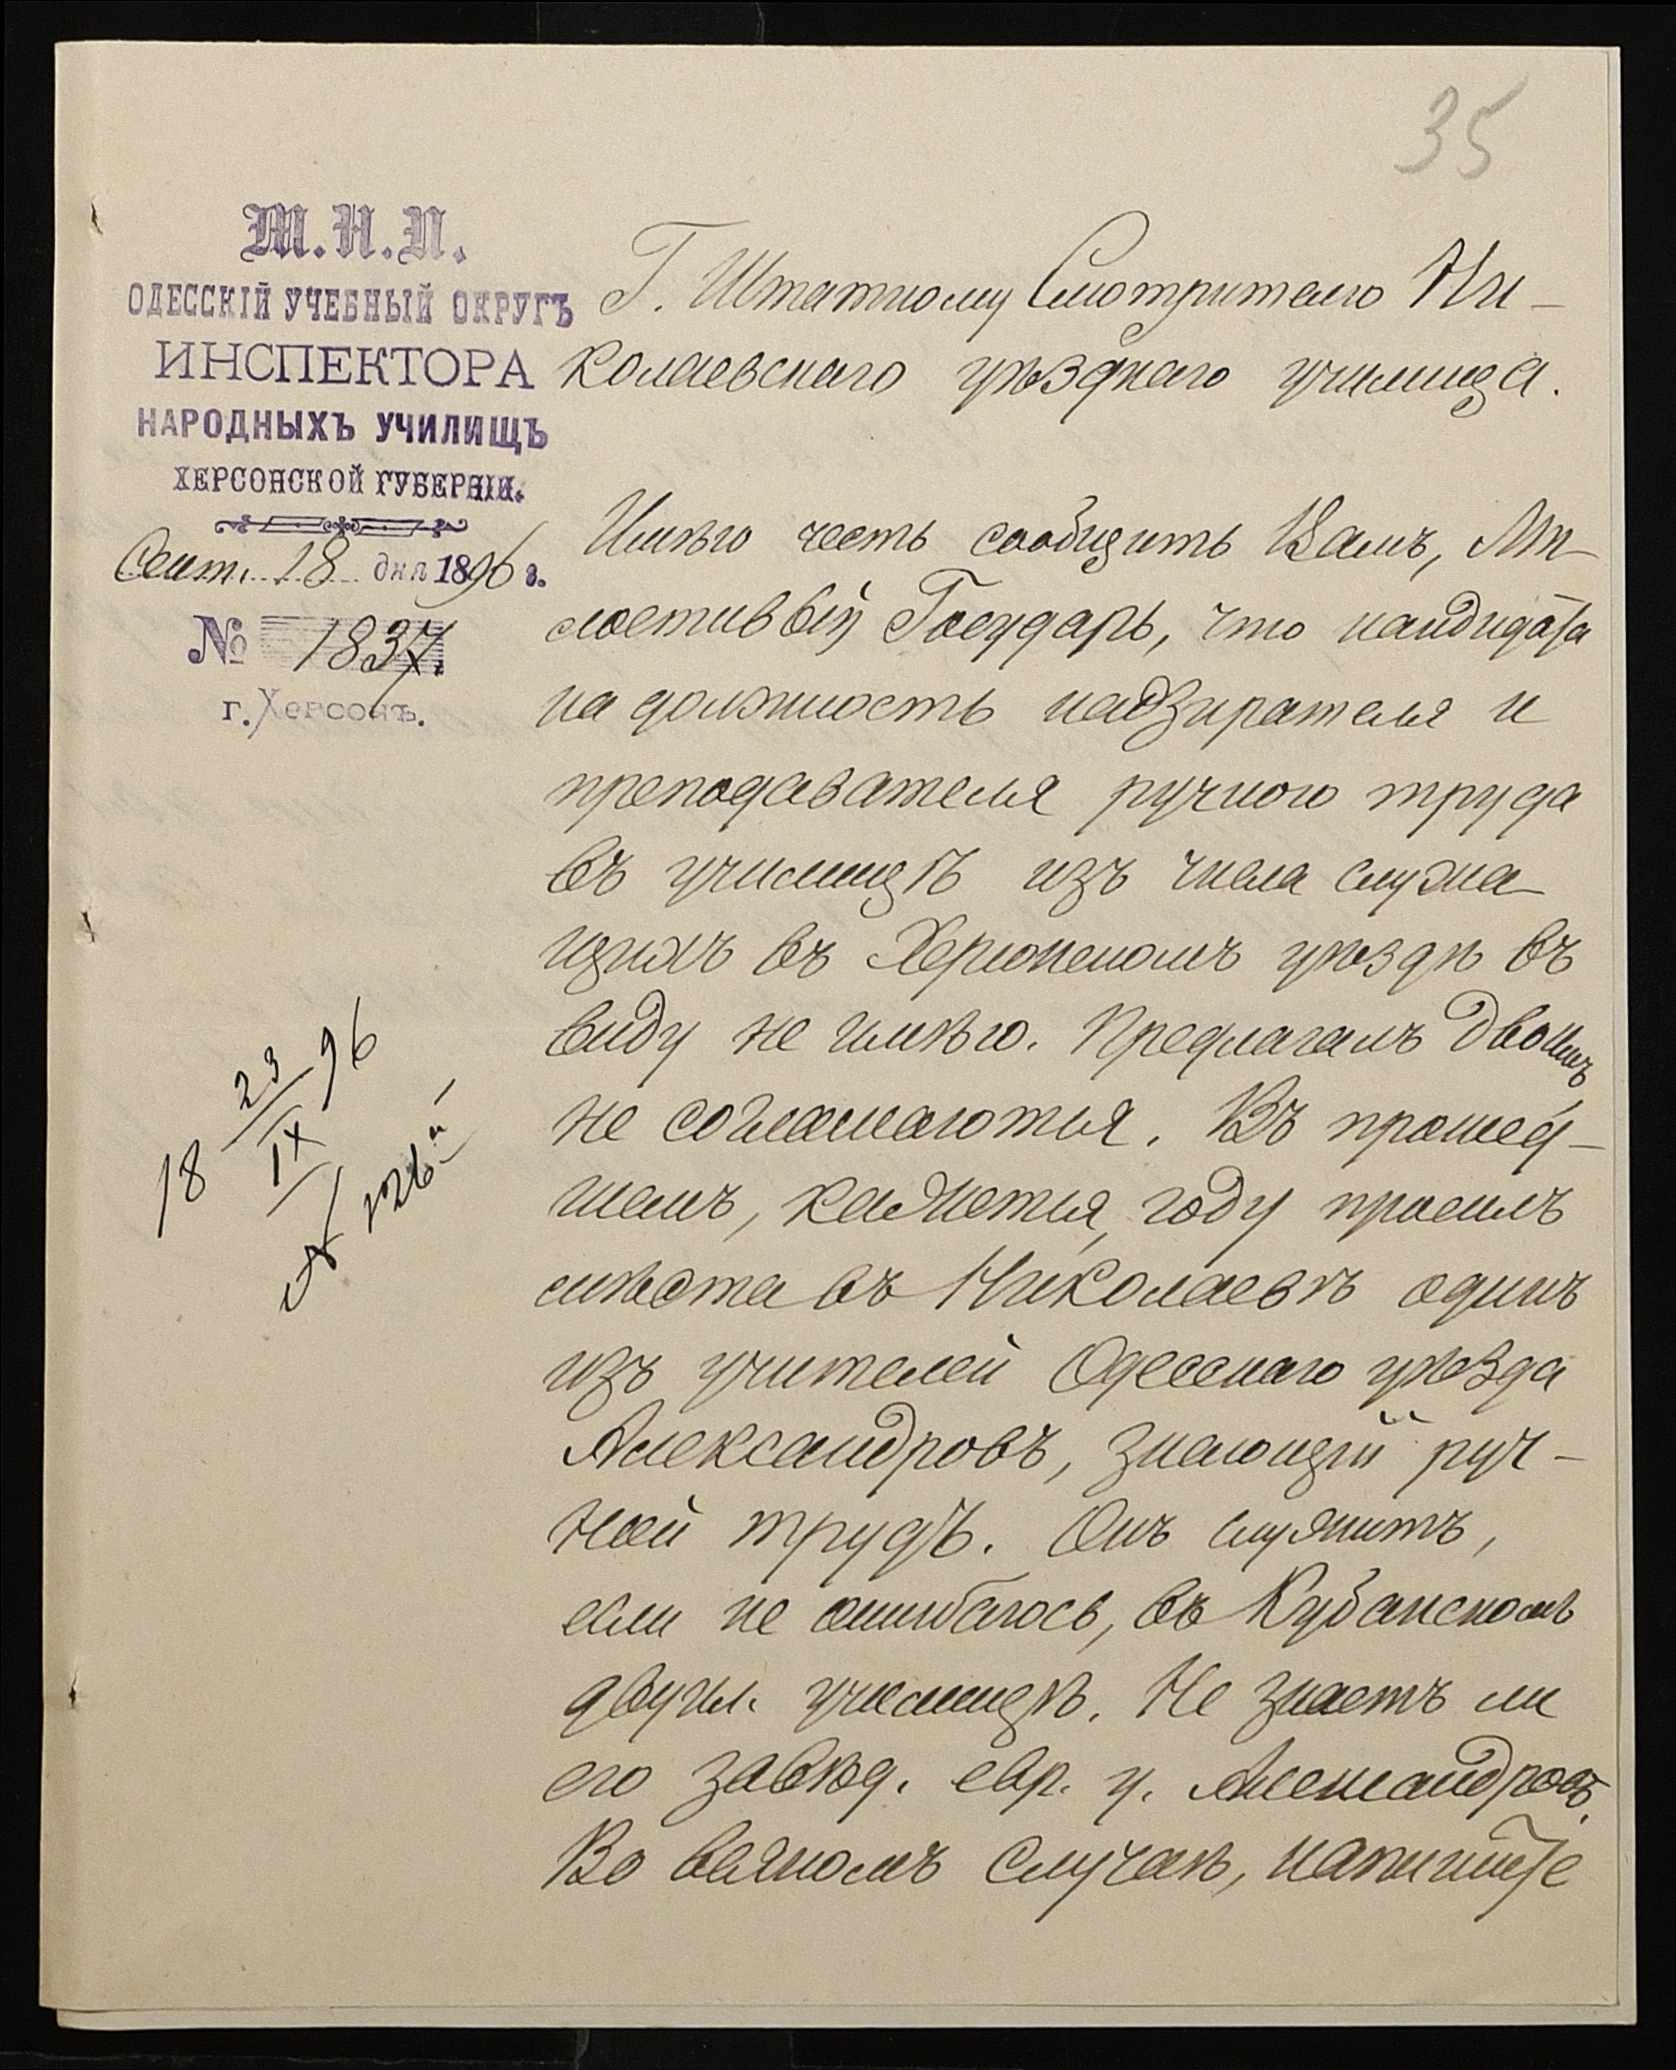 35
М.Н.П.
ОДЕССКІЙ УЧЕБНЫЙ ОКРУГЪ
ИНСПЕКТОРА
НАРОДНЫХЪ УЧИЛИЩЪ
ХЕРСОНСКОЙ ГУБЕРНІИ.
Сент. 18 дня 1896 г.
№ 1837.
г. Херсонъ.
Г. Штатному Смотрителю Ни-
колаевскаго уѣзднаго училища.
Имѣю честь сообщить Вамъ, Ми-
лостивый Государь, что кандидата
на должность надзирателя и
преподавателя ручного труда
въ училищѣ изъ числа служа-
щихъ въ Херсонскомъ уѣздѣ въ
виду не имѣю. Предлагалъ двоимъ
не соглашаются. Въ прошед-
шемъ, кажется, году просилъ
мѣста въ Николаевѣ одинъ
изъ учителей Одесскаго уѣзда
Александровъ, знающій руч-
ной трудъ. Онъ служитъ,
если не ошибаюсь, въ Кубанскомъ
двухкл. училищѣ. Не знаетъ ли
его завѣд. евр. у. Александровъ.
Во всякомъ случаѣ, напишите
18 23/IX 96